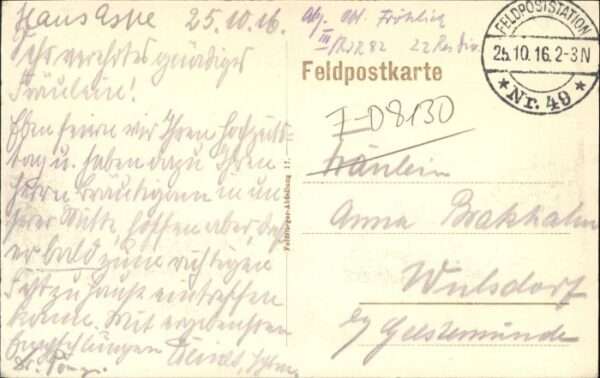 Haus Aspe 25.10.16.
Sehr verehrtes gnädiges
Fräulein!
Eben feiern wir Ihren Hochzeits-
tag u. haben dazu Ihren
Herrn Bräutigam in un-
serer Mitte, hoffen aber, daß
er bald zum richtigen
Fest zu Hause eintreffen
kann. Mit ergebensten
Empfehlungen
Abs. Fröhlich
III/R.I.R. 82 22 Res. Div.
Feldpostkarte
FELDPOSTSTATION
25.10.16.2-3N
* Nr. 49 *
7-D8130
Fräulein
Anna Brakhahn
Wulsdorf
b/ Geestemünde